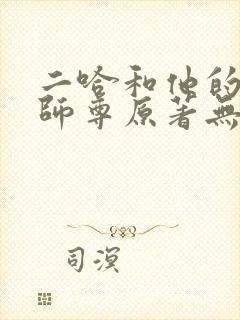 二哈和他的
師尊原著無
司溟